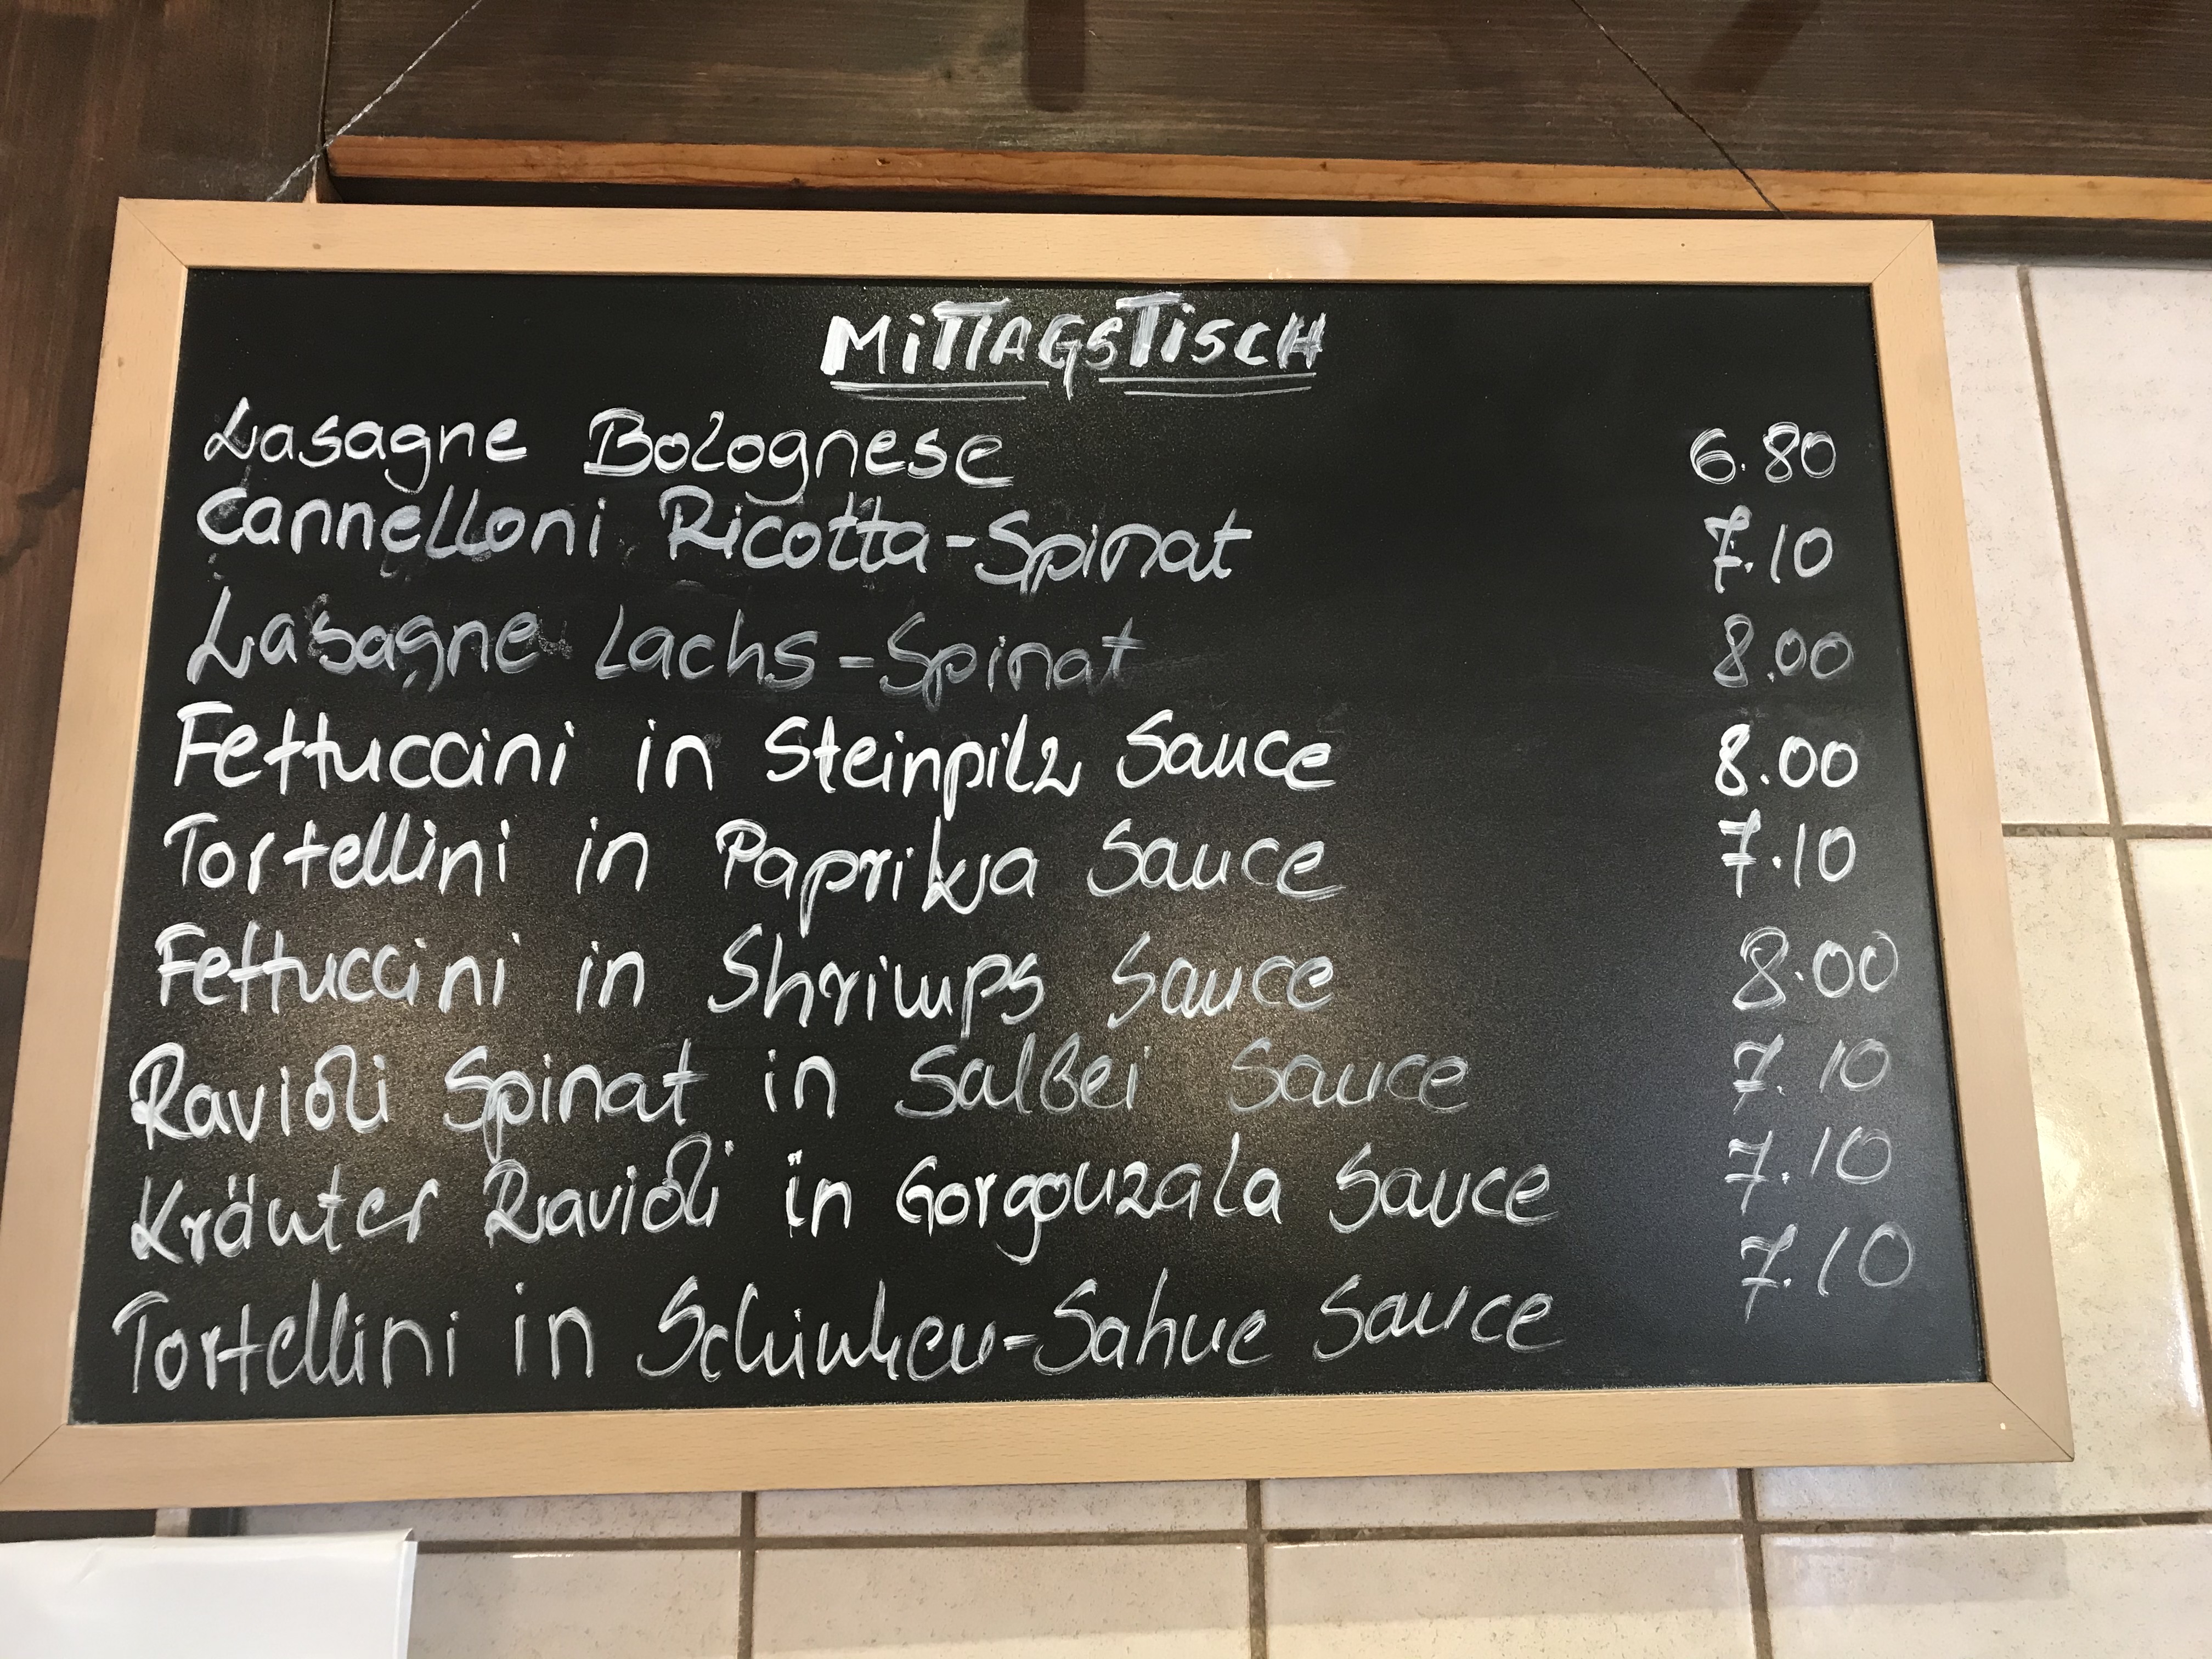 MiTTAGSTiSCH
Lasagne Bolognese 6.80
Cannelloni Ricotta-Spinat 7.10
Lasagne Lachs-Spinat 8.00
Fettuccini in Steinpilz Sauce 8.00
Tortellini in Paprika Sauce 7.10
Fettuccini in Shrimps Sauce 8.00
Ravioli Spinat in Salbei Sauce 7.10
Kräuter Ravioli in Gorgonzala Sauce 7.10
Tortellini in Schinken-Sahne Sauce 7.10